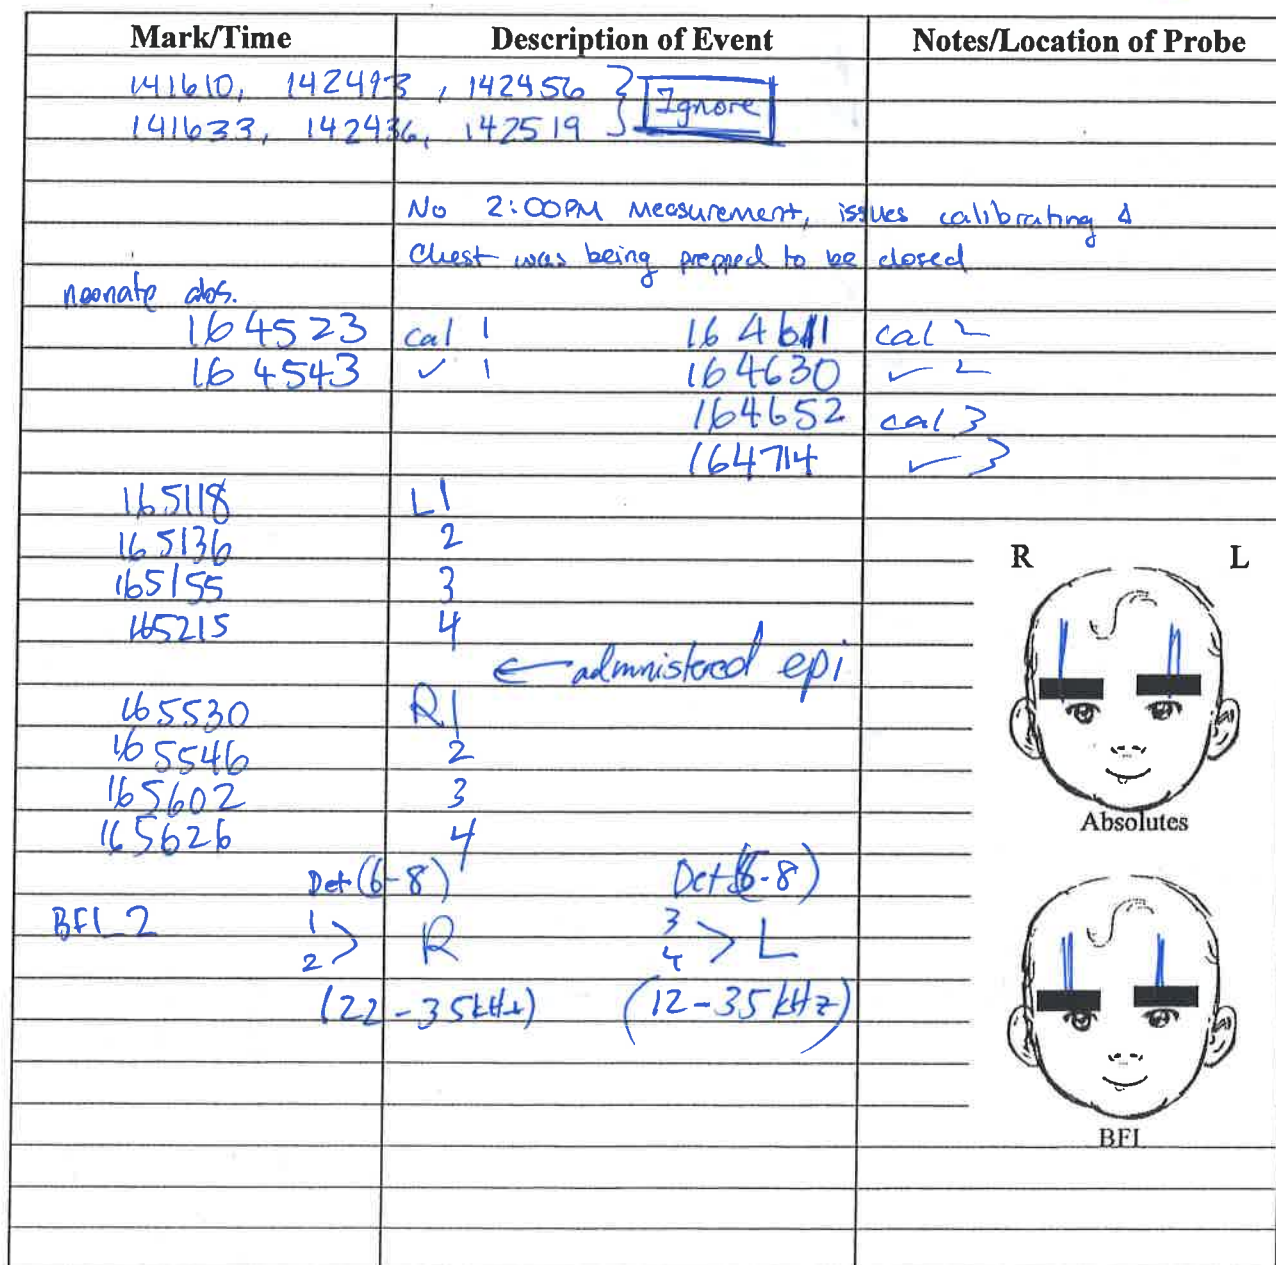 Mark/Time Description of Event Notes/Location of Probe
141610, 142413, 142456
141633, 142436, 142519
Ignore
No 2:00PM measurement, issues calibrating &
Chest was being prepped to be closed
neonate abs.
164523 cal 1 164611 cal 2
164543 ✓ 1 164630 ✓ 2
164652 cal 3
164714 ✓ 3
165118 L1
165136 2
165155 3
165215 4
← administered epi
165530 R1
165546 2
165602 3
165626 4
R L
Absolutes
Det (6-8) Det (6-8)
BFI_2 1 2 > R 3 4 > L
(22-35kHz) (12-35kHz)
BFI